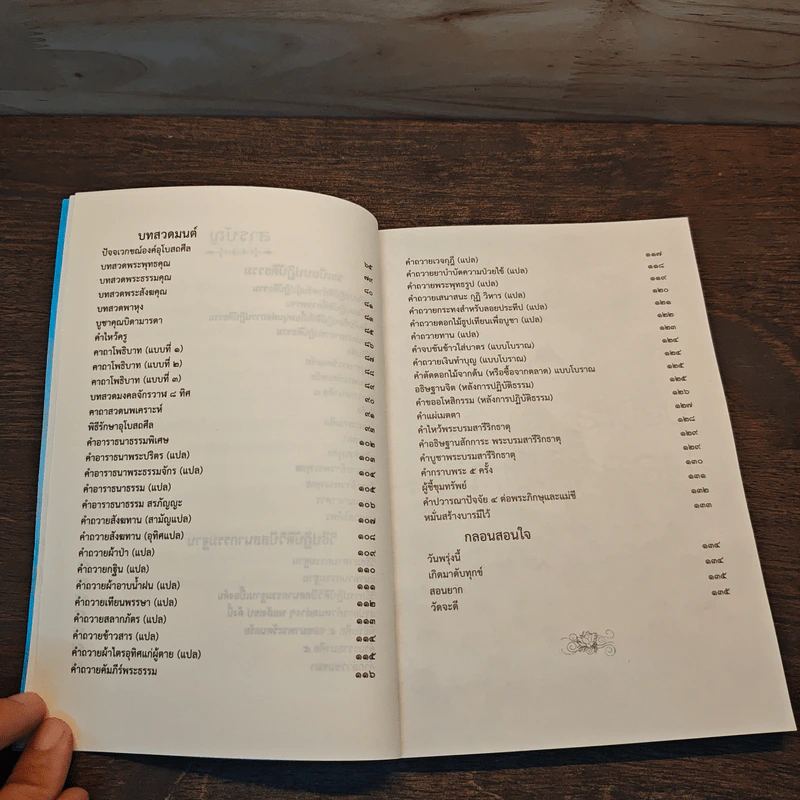 บทสวดมนต์
ปัจจเวกขณ์องค์อุโบสถศีล ๖๕
บทสวดพระพุทธคุณ ๗๙
บทสวดพระธรรมคุณ ๘๐
บทสวดพระสังฆคุณ ๘๑
บทสวดพาหุง ๘๑
บูชาคุณบิดามารดา ๘๕
คำไหว้ครู ๘๖
คาถาโพธิบาท (แบบที่ ๑) ๘๗
คาถาโพธิบาท (แบบที่ ๒) ๘๘
คาถาโพธิบาท (แบบที่ ๓) ๘๙
บทสวดมงคลจักรวาฬ ๘ ทิศ ๙๐
คาถาสวดนพเคราะห์ ๙๑
พิธีรักษาอุโบสถศีล ๙๓
คำอาราธนาธรรมพิเศษ ๑๐๒
คำอาราธนาพระปริตร (แปล) ๑๐๓
คำอาราธนาพระธรรมจักร (แปล) ๑๐๔
คำอาราธนาธรรม (แปล) ๑๐๕
คำอาราธนาธรรม สรภัญญะ ๑๐๖
คำถวายสังฆทาน (สามัญแปล) ๑๐๗
คำถวายสังฆทาน (อุทิศแปล) ๑๐๘
คำถวายผ้าป่า (แปล) ๑๐๙
คำถวายกฐิน (แปล) ๑๑๐
คำถวายผ้าอาบน้ำฝน (แปล) ๑๑๑
คำถวายเทียนพรรษา (แปล) ๑๑๒
คำถวายสลากภัตร (แปล) ๑๑๓
คำถวายข้าวสาร (แปล) ๑๑๔
คำถวายผ้าไตรอุทิศแก่ผู้ตาย (แปล) ๑๑๕
คำถวายคัมภีร์พระธรรม ๑๑๖
คำถวายเวจกุฎี (แปล) ๑๑๗
คำถวายยาบำบัดความป่วยไข้ (แปล) ๑๑๘
คำถวายพระพุทธรูป (แปล) ๑๑๙
คำถวายเสนาสนะ กุฏิ วิหาร (แปล) ๑๒๐
คำถวายกระทงสำหรับลอยประทีป (แปล) ๑๒๑
คำถวายดอกไม้ธูปเทียนเพื่อบูชา (แปล) ๑๒๒
คำถวายทาน (แปล) ๑๒๓
คำจบขันข้าวใส่บาตร (แบบโบราณ) ๑๒๔
คำถวายเงินทำบุญ (แบบโบราณ) ๑๒๔
คำตัดดอกไม้จากต้น (หรือซื้อจากตลาด) แบบโบราณ ๑๒๕
อธิษฐานจิต (หลังการปฏิบัติธรรม) ๑๒๕
คำขออโหสิกรรม (หลังการปฏิบัติธรรม) ๑๒๖
คำแผ่เมตตา ๑๒๗
คำไหว้พระบรมสารีริกธาตุ ๑๒๘
คำอธิษฐานสักการะ พระบรมสารีริกธาตุ ๑๒๙
คำบูชาพระบรมสารีริกธาตุ ๑๒๙
คำกราบพระ ๕ ครั้ง ๑๓๐
ผู้ชี้ขุมทรัพย์ ๑๓๑
คำปวารณาปัจจัย ๔ ต่อพระภิกษุและแม่ชี ๑๓๒
หมั่นสร้างบารมีไว้ ๑๓๓
กลอนสอนใจ
วันพรุ่งนี้ ๑๓๔
เกิดมาดับทุกข์ ๑๓๔
สอนยาก ๑๓๕
วัดจะดี ๑๓๕